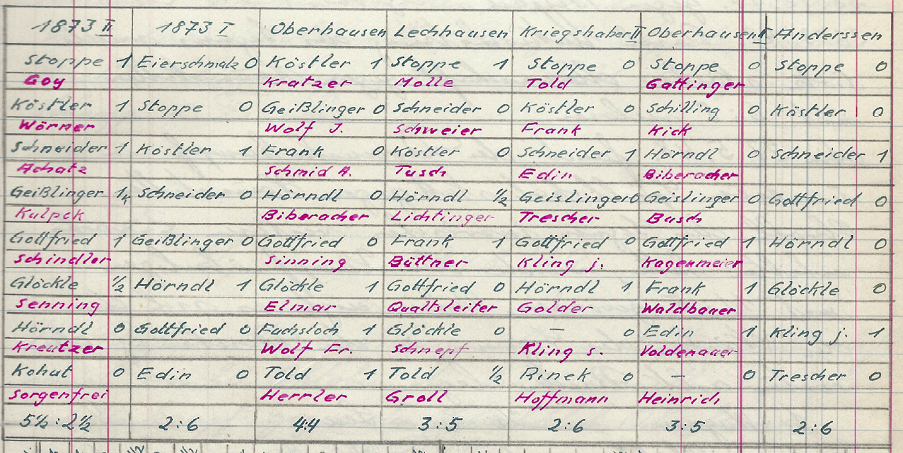 1873 II 1873 I Oberhausen Lechhausen Kriegshaber II Oberhausen II Anderssen
Stoppe 1 Eierschmalz 0 Köstler 1 Stoppe 1 Stoppe 0 Stoppe 0 Stoppe 0
Goy Kratzer Molle Told Gattinger
Köstler 1 Stoppe 0 Geißlinger 0 Schneider 0 Köstler 0 Schilling 0 Köstler 0
Wörner Wolf J. Schweier Frank Kick
Schneider 1 Köstler 1 Frank 0 Köstler 0 Schneider 1 Hörndl 0 Schneider 1
Achatz Schmid A. Tusch Edin Biberacher
Geißlinger Schneider 0 Hörndl 0 Hörndl ½ Geislinger 0 Geislinger 0 Gottfried 0
Kulpck Biberacher Lichtinger Trescher Busch
Gottfried 1 Geißlinger 0 Gottfried 0 Frank 1 Gottfried 0 Gottfried 1 Hörndl 0
Schindler Sinning Büttner Kling j. Kagenmeier
Glöckle ½ Hörndl 1 Glöckle 1 Gottfried 0 Hörndl 1 Frank 1 Glöckle 0
Senning Elmar Qualtsleiter Golder Waldbauer
Hörndl 0 Gottfried 0 Fuchsloch 1 Glöckle 0 — 0 Edin 1 Kling j. 1
Kreutzer Wolf Fr. Schnepf Kling s. Voldenauer
Kohut 0 Edin 0 Told 1 Told ½ Rinek 0 — 0 Trescher 0
Sorgenfrei Herrler Groll Hoffmann Heinrich
5½:2½ 2:6 4:4 3:5 2:6 3:5 2:6